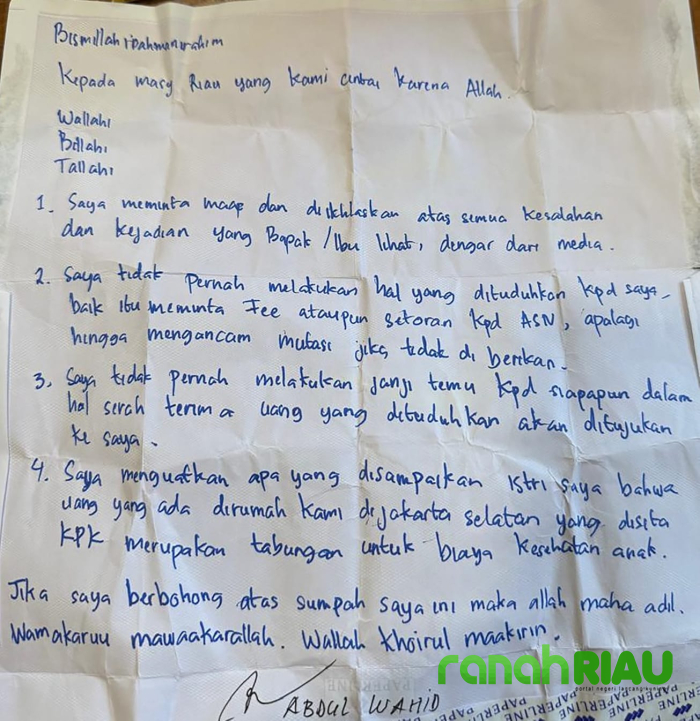 Bismillahirahmanirahim
Kepada masy Riau yang kami cintai karena Allah.
Wallahi
Billahi
Tallahi
1. Saya meminta maaf dan diikhlaskan atas semua kesalahan
dan kejadian yang Bapak/Ibu lihat, dengar dari media.
2. Saya tidak pernah melakukan hal yang dituduhkan kpd saya
baik itu meminta Fee ataupun setoran kpd ASN, apalagi
hingga mengancam mutasi jika tidak di berikan.
3. Saya tidak pernah melakukan janji temu kpd siapapun dalam
hal serah terima uang yang dituduhkan akan ditujukan
ke saya.
4. Saya menguatkan apa yang disampaikan istri saya bahwa
uang yang ada dirumah kami dijakarta selatan yang disita
KPK merupakan tabungan untuk biaya kesehatan anak.
Jika saya berbohong atas sumpah saya ini maka allah maha adil.
Wamakaruu mawaakarallah. Wallah khoirul maakirin.
ranahRIAU
portal negeri lancang kuning
ABDUL WAHID
PAPERLINE
PAPERLINE PAPERLINE